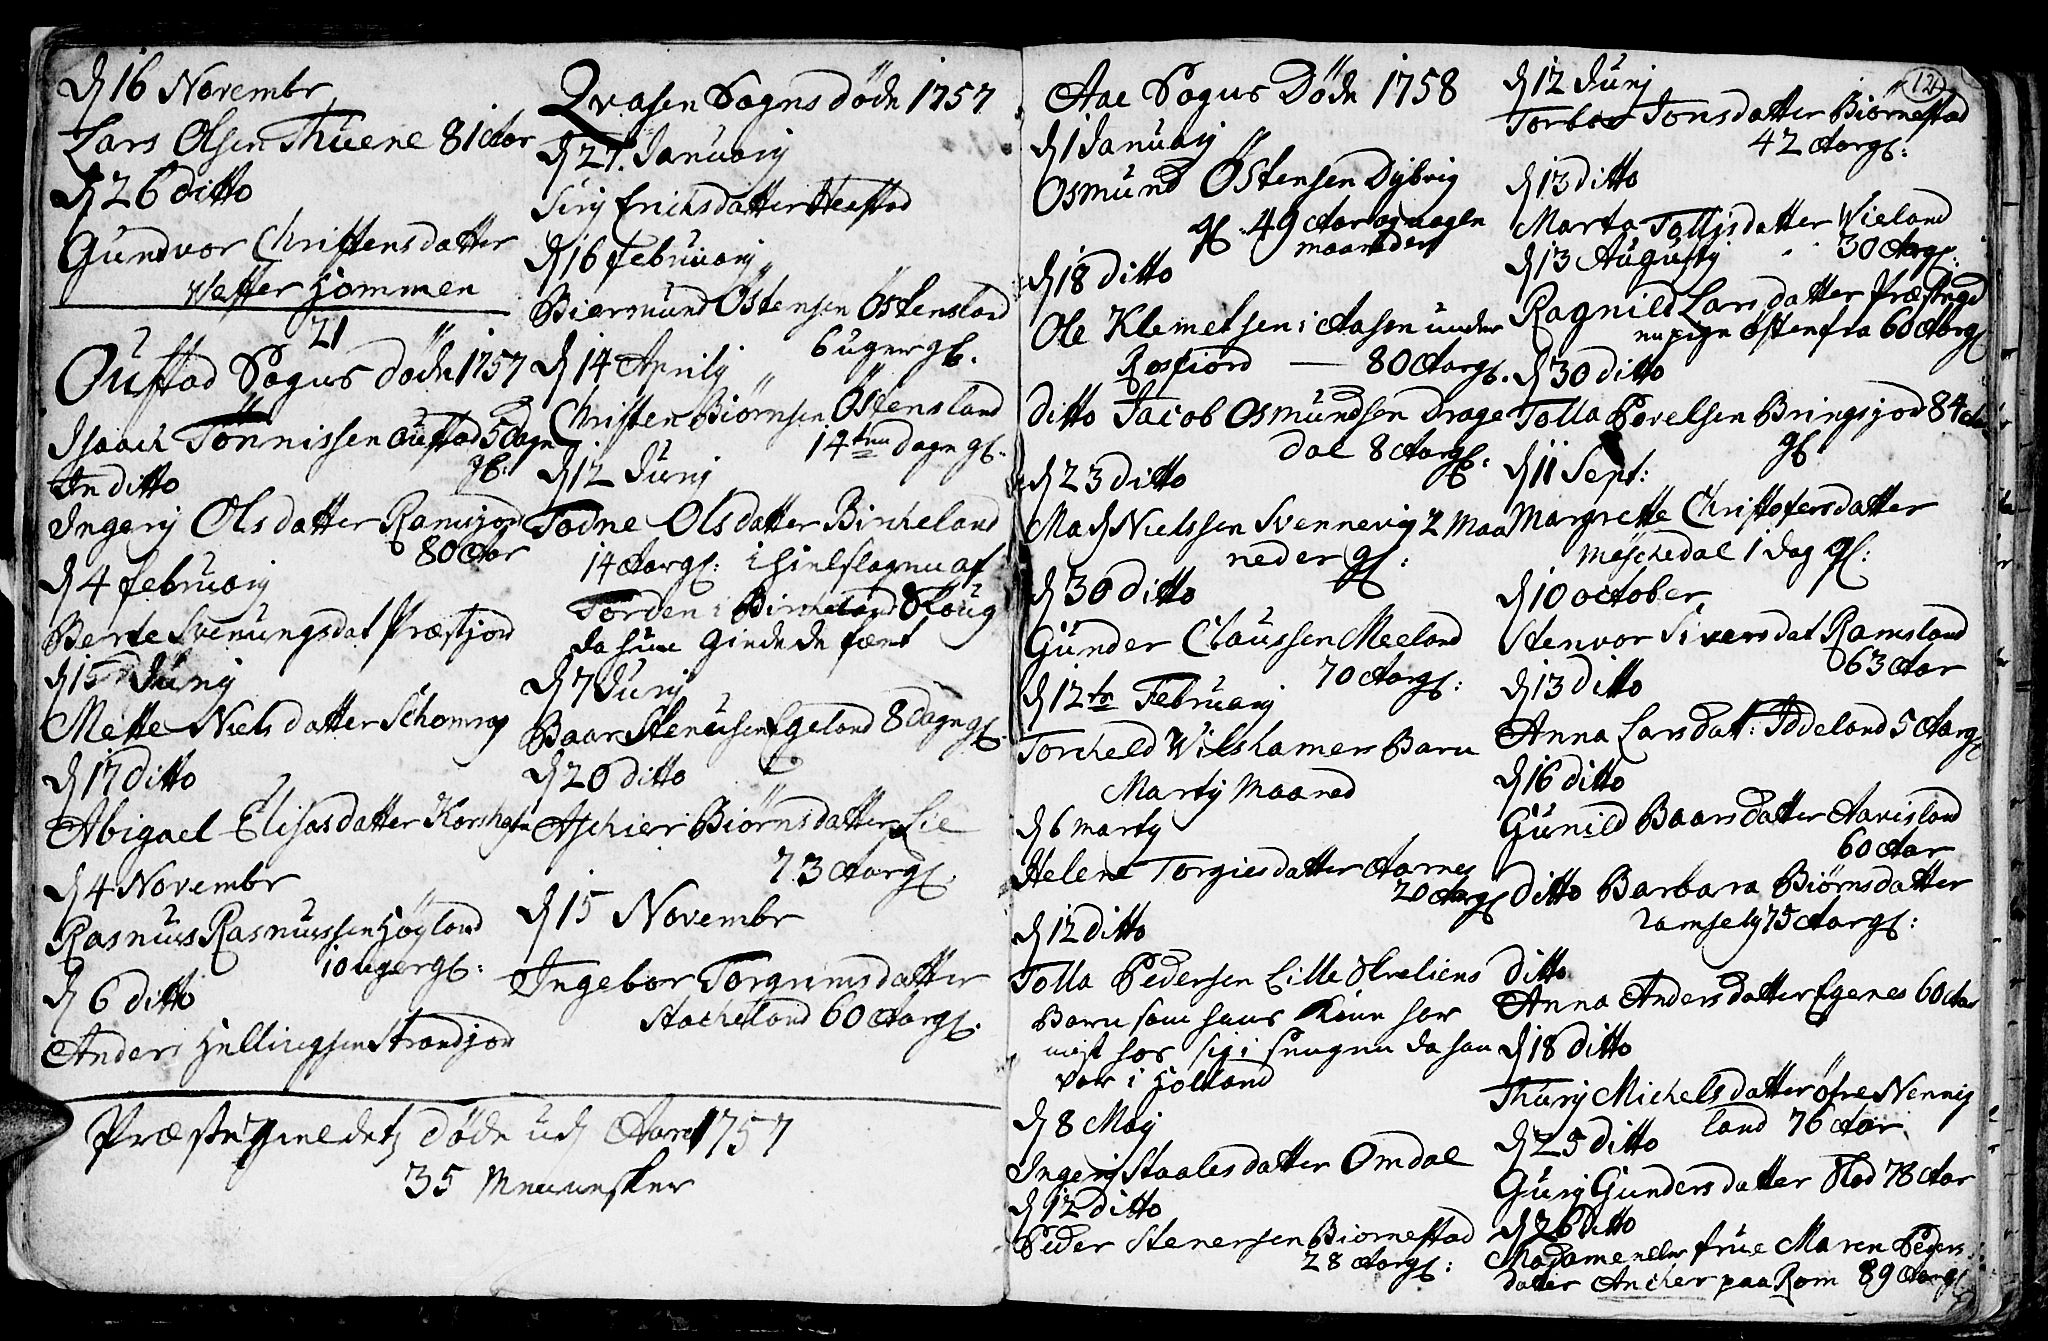 D 16 Novembr
Lars Olsen Thuene 81 Aar
D 26 ditto
Gundvor Christensdatter
Vester Hommen
21
Oustad Sogns döde 1757
Isaach Tönnissen Oustad 5 dage
gl:
In ditto
Ingerij Olsdatter Ramsjord
80 Aar
D 4 februarij
Berte Svenungsdat Præstjord
D 15 Junij
Mette Nielsdatter Schomrag
D 17 ditto
Abigael Elisasdatter Korshafn
D 4 Novembr
Rasmus Rasmussen Høyland
10 uger gl:
D 6 ditto
Anders Hellingsen Strandjord
Qvasen Sogns döde 1757
D 27. Januarij
Sirij Erichsdatter Heestad
D 16 februarij
Biermund Östensen Östensland
6 uger gl.
D 14 Aprilij
Christen Biörnsen Östensland
14ten dage gl.
D 12 Junij
Todne Olsdatter Bircheland
14 Aar gl: ihielslagen af
Torden i Birkeland Skoug
da hun giedede fæet
D 7 Junij
Baar Stenersen Egeland 8 dage gl.
D 20 ditto
Aschier Biörnsdatter Lie
73 Aar gl.
D 15 Novembr
Ingebor Torgrimsdatter
Stacheland 60 Aar gl.
Præstegieldets döde udj Aaret 1757
35 Mennesker
Aae Sogns Döde 1758
D 1 Januarij
Osmund Östensen Dybvig
gl. 49 Aar og nogen
maaneder
D 18 ditto
Ole Klemetsen i Aasen under
Rosfiord — 80 Aar gl.
ditto Jacob Osmundsen Drage
dal 8 Aar gl.
D 23 ditto
Mads Nielssen Svennevig 2 Maa
neder gl:
D 30 ditto
Gunder Claussen Meeland
70 Aar gl:
D 12te Februarij
Torkeld Wilshamer Barn
Martij Maaned
D 6 Martij
Helene Torgiesdatter Aarnes
20 Aar gl
D 12 ditto
Tolla Pedersen Lille
Barn som hans Kone har
hos sig i sengen da han
var i Holland
D 8 Maij
Ingerij Staalesdatter Omdal
D 12 ditto
Peder Stenersen Biørnestad
28 Aar gl:
121
D 12 Junij
Torbor Tonsdatter Biørnestad
42 Aar gl:
D 13 ditto
Marta Tollijsdatter Wieland
30 Aar gl:
D 13 Augustij
Ragnild Larsdatter Præstegd
en pige östenfra 60 Aar gl
D 30 ditto
Tolla Povelsen Bringsjord 84 Aar
gl
D 11 Sept:
Margrette Christofersdatter
Møschedal 1 dag gl:
D 10 october
Stenvor Siversdat Ramsland
63 Aar
D 13 ditto
Anna Larsdat: Iddeland 5 Aar gl
D 16 ditto
Gunild Baarsdatter Aavisland
60 Aar
ditto Barbara Biørnsdatter
75 Aar gl:
ditto
Anna Andersdatter Egenes 60 Aar
D 18 ditto
Thurij Michelsdatter øfre Nennig
land 76 Aar
D 25 ditto
Gurij Gundersdatter 78 Aar
D 26 ditto
Madame eller frue Maren Peders
datter Ancher paa Rom 89 Aar gl